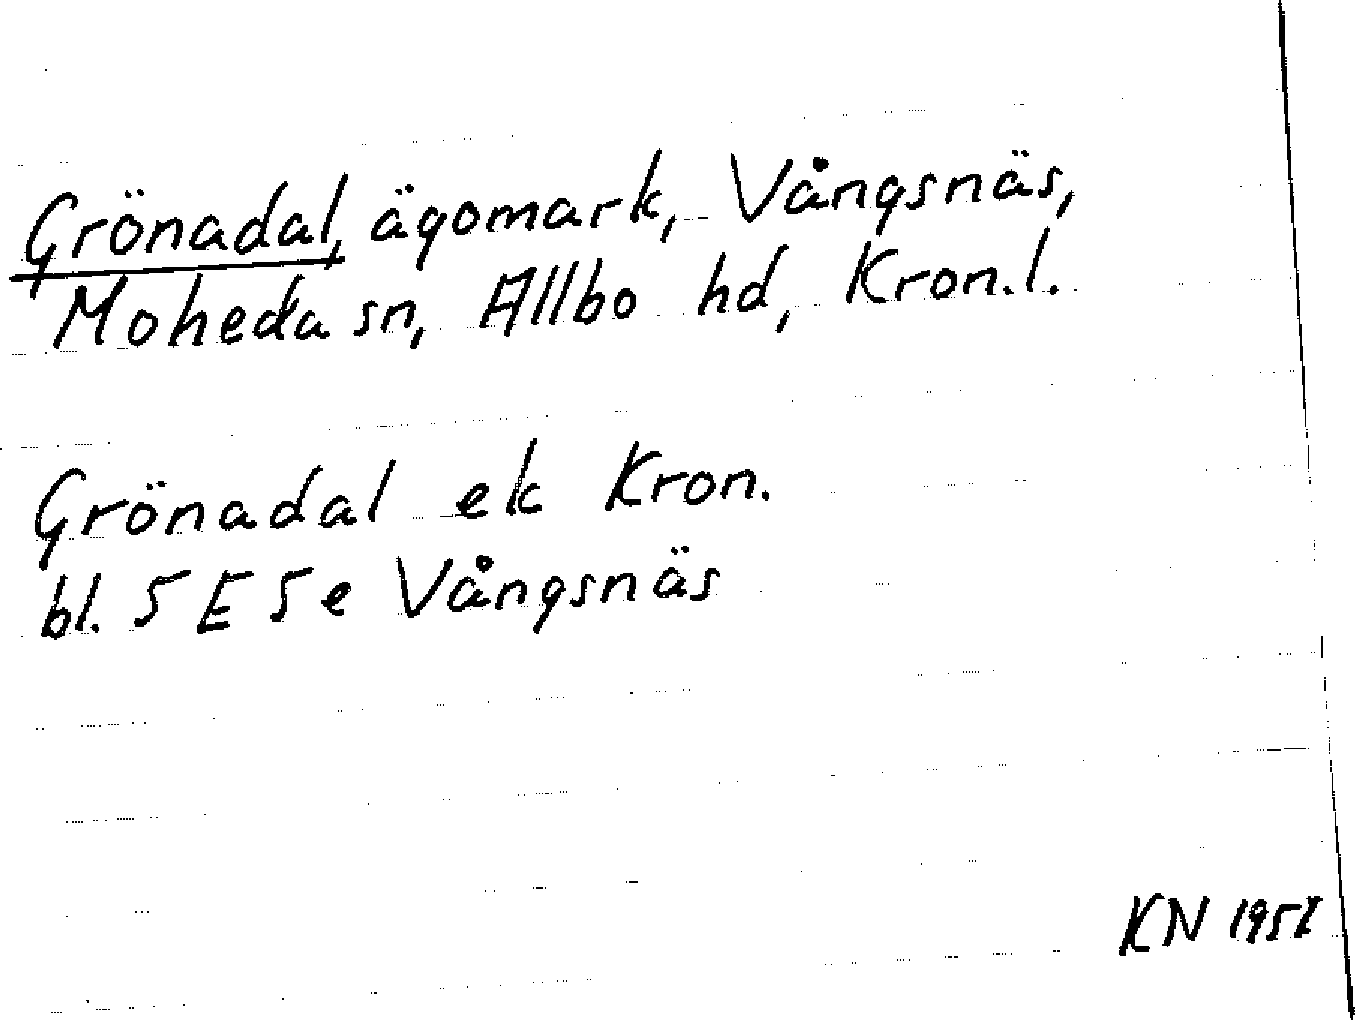 Grönadal, ägomark, Vångsnäs,
Moheda sn, Allbo hd, Kron.l.
Grönadal ek Kron.
bl. 5 E 5 e Vångsnäs
KN